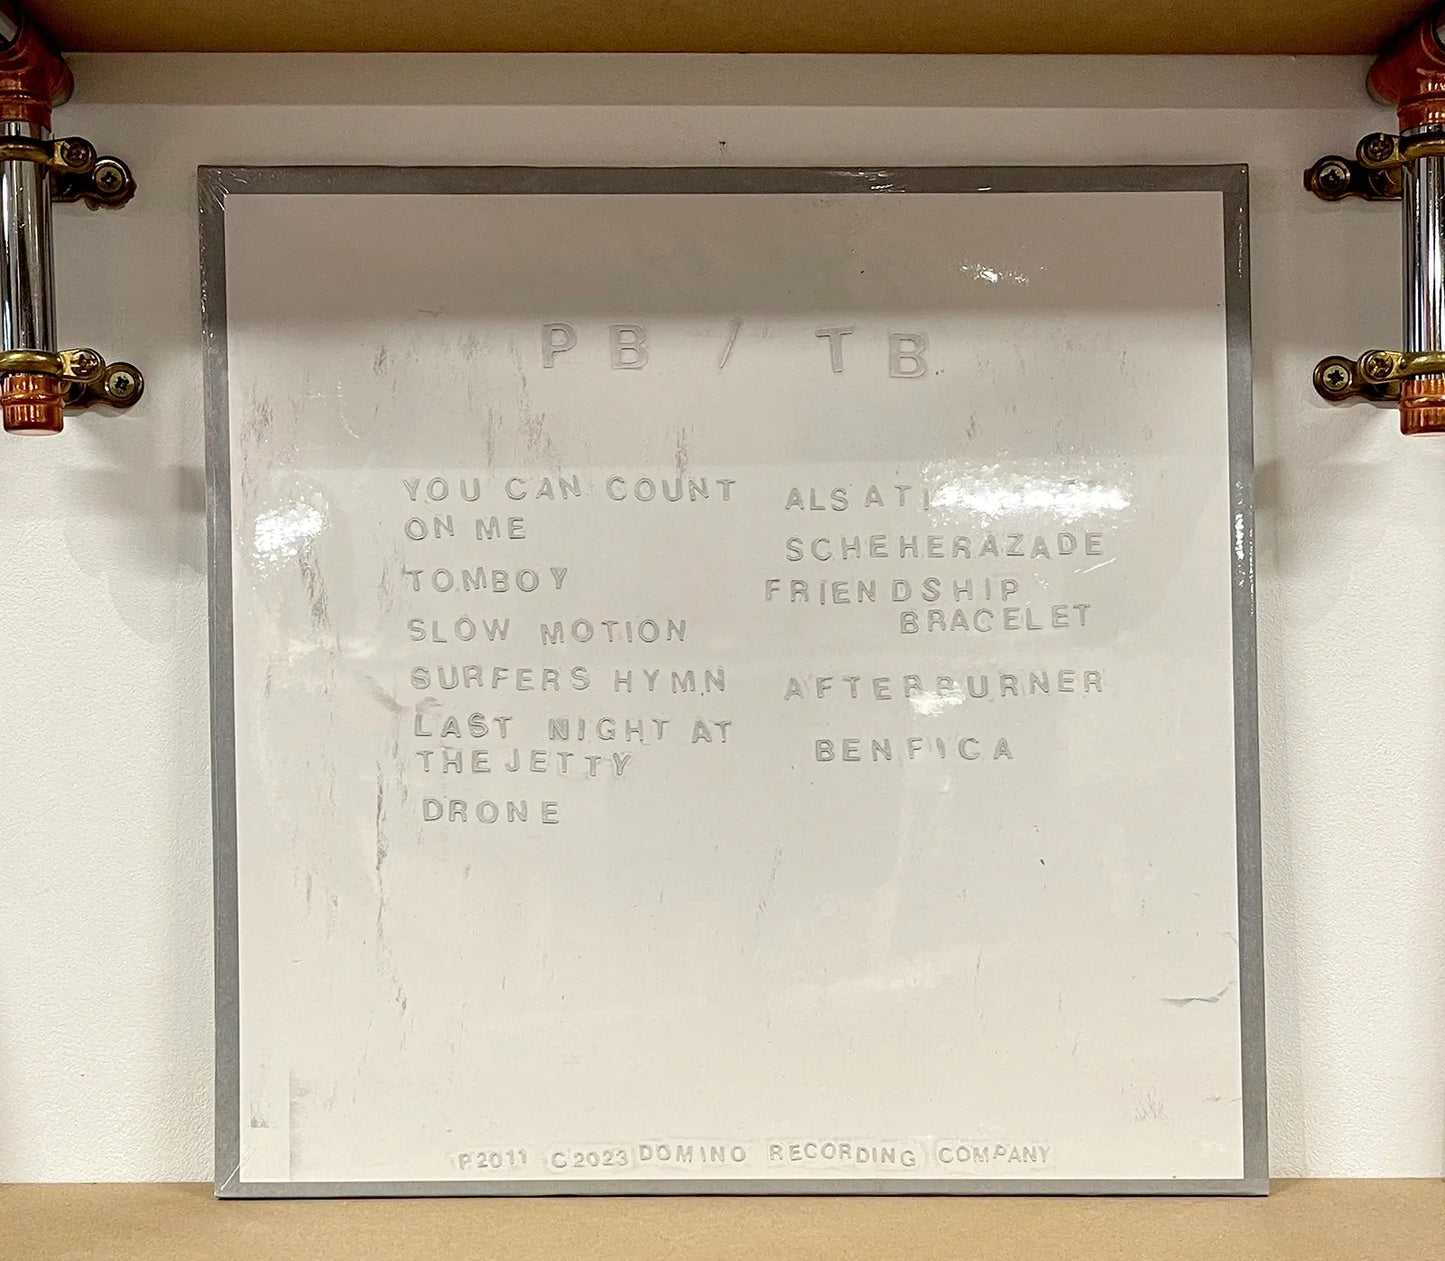 PB / TB
YOU CAN COUNT
ON ME
TOMBOY
SLOW MOTION
SURFERS HYMN
LAST NIGHT AT
THE JETTY
DRONE
SCHEHERAZADE
FRIENDSHIP
BRACELET
AFTERBURNER
BENFICA
P2011 C2023 DOMINO RECORDING COMPANY